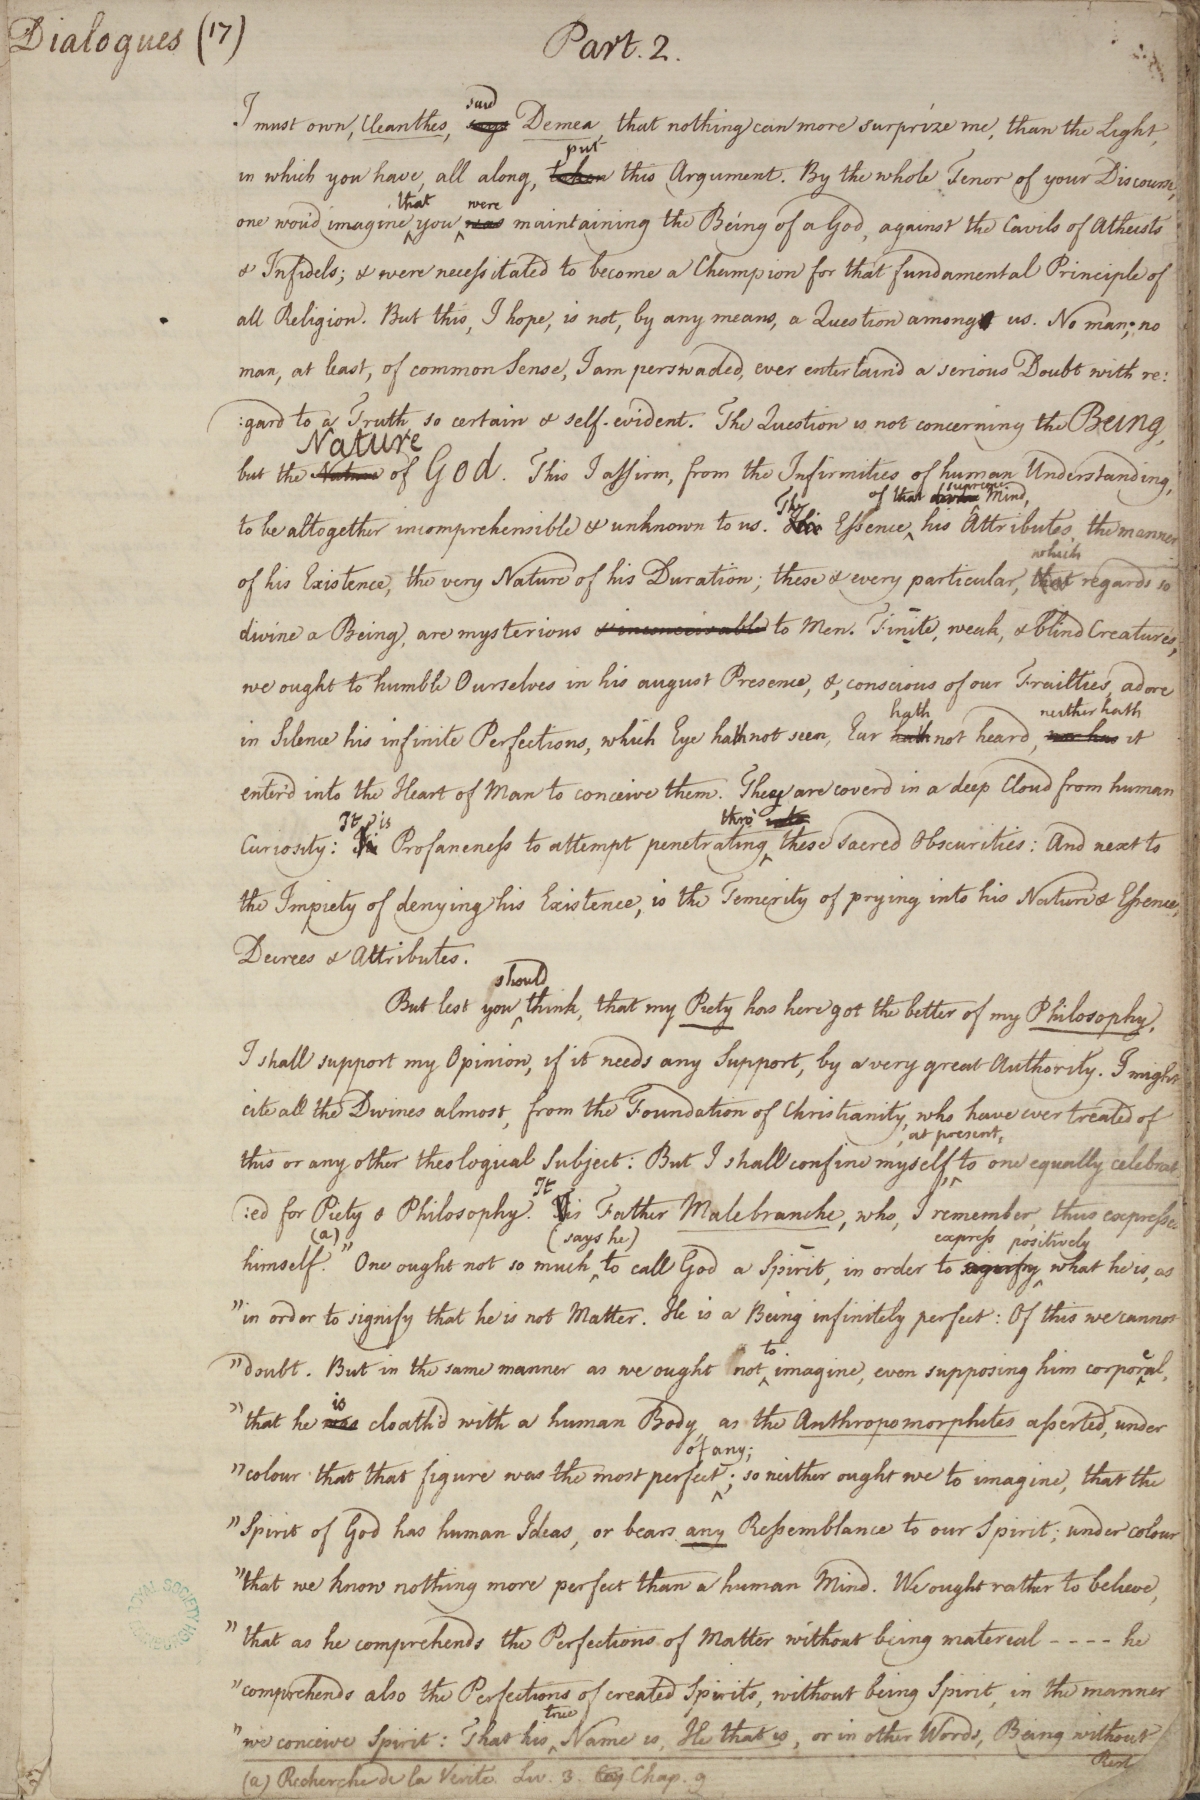 Dialogues (17)
Part. 2.
I must own, Cleanthes, said Demea, that nothing can more surprize me, than the Light,
in which you have, all along, put this Argument. By the whole Tenor of your Discourse,
one wou'd imagine that you were maintaining the Being of a God, against the Cavils of Atheists
& Infidels; & were necessitated to become a Champion for that fundamental Principle of
all Religion. But this, I hope, is not, by any means, a Question among us. No man; no
man, at least, of common Sense, I am perswaded, ever entertain'd a serious Doubt with re:
:gard to a Truth, so certain & self-evident. The Question is not concerning the Being,
but the Nature of God. This I affirm, from the Infirmities of human Understanding,
to be altogether incomprehensible & unknown to us. The Essence of that supreme Mind, his Attributes, the manner
of his Existence, the very Nature of his Duration; these & every particular, which regards so
divine a Being, are mysterious & inconceivable to Men. Finite, weak, & blind Creatures,
we ought to humble Ourselves in his august Presence, &, conscious of our Frailties, adore
in Silence his infinite Perfections, which Eye hath not seen, Ear hath not heard, neither hath it
enter'd into the Heart of Man to conceive them. They are coverd in a deep Cloud from human
Curiosity: It is Profaneness to attempt penetrating thro' these sacred Obscurities: And next to
the Impiety of denying his Existence, is the Temerity of prying into his Nature & Essence,
Decrees & Attributes.
But lest you should think, that my Piety has here got the better of my Philosophy,
I shall support my Opinion, if it needs any Support, by a very great Authority. I might
cite all the Divines almost, from the Foundation of Christianity, who have ever treated of
this or any other theological Subject: But I shall confine myself, at present, to one equally celebrat
:ed for Piety & Philosophy. It is Father Malebranche, who, I remember, thus expresses
himself. (a) " One ought not so much (says he) to call God a Spirit, in order to express positively what he is, as
" in order to signify that he is not Matter. He is a Being infinitely perfect: Of this we cannot
" doubt. But in the same manner as we ought not to imagine, even supposing him corporeal,
" that he is cloath'd with a human Body, as the Anthropomorphites asserted, under
" colour that that figure was the most perfect of any; so neither ought we to imagine, that the
" Spirit of God has human Ideas, or bears any Ressemblance to our Spirit; under colour
" that we know nothing more perfect than a human Mind. We ought rather to believe,
" that as he comprehends the Perfections of Matter without being matereal - - - - he
" comprehends also the Perfections of created Spirits, without being Spirit, in the manner
" we conceive Spirit: That his true Name is, He that is, or in other Words, Being without
Rest
(a) Recherche de la Verite. Liv. 3. Chap. 9